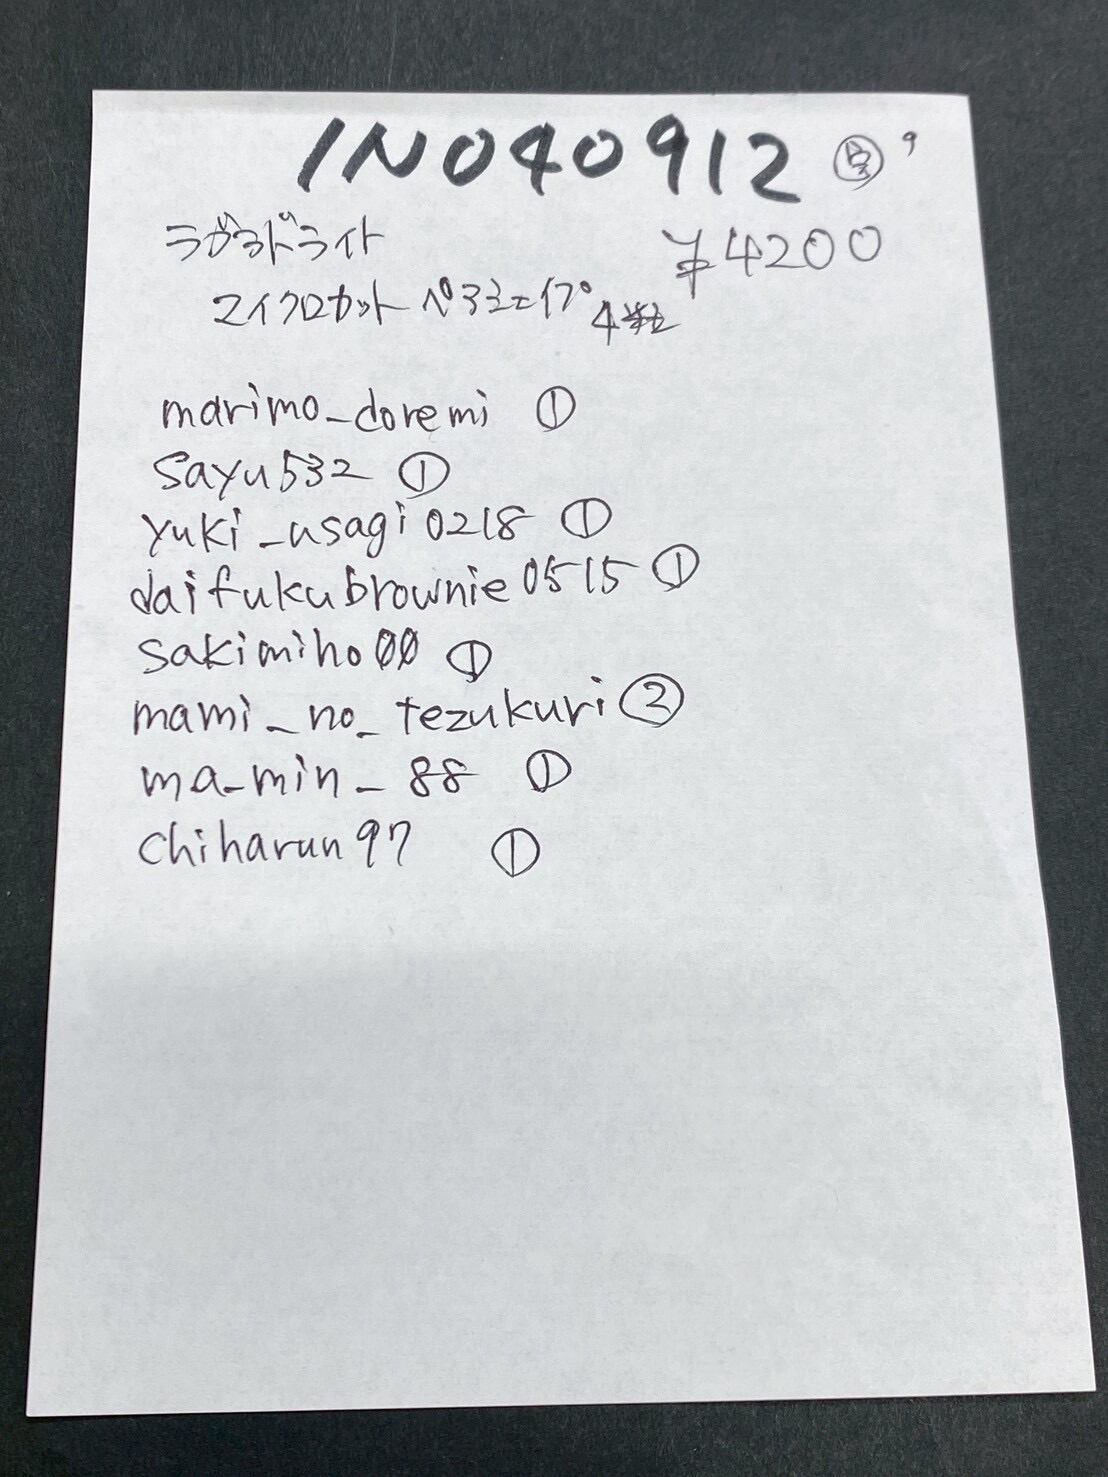 INO40912 9
ラブラドライト ¥4200
マイクロカット ペアシェイプ 4粒
marimo_doremi ①
sayu532 ①
yuki_usagi0218 ①
daifukubrownie0515 ①
sakimiho00 ①
mami_no_tezukuri ②
ma_min_88 ①
chiharun97 ①